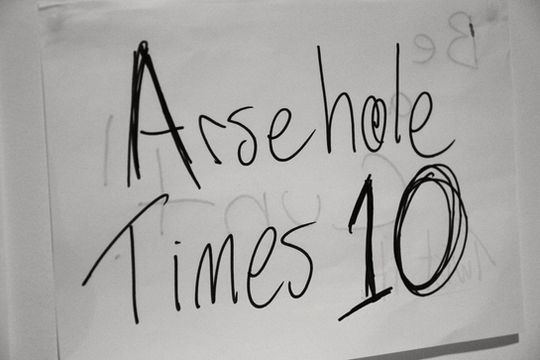 Arsehole
Times 10
Be